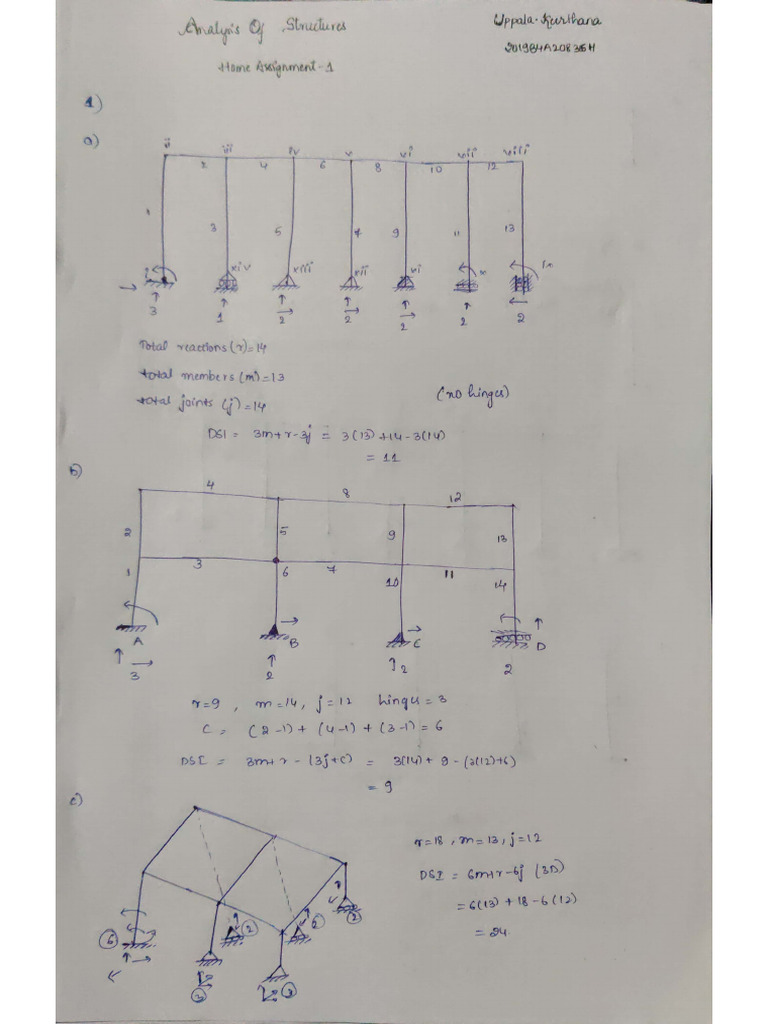 Analysis Of Structures
Uppala. Keerthana
Home Assignment-1
1)
a)
ii iii iv v vi vii viii
2 4 6 8 10 12
1 3 5 7 9 11 13
i xiv xiii xii xi x ix
3 1 2 2 2 2 2
Total reactions (r) = 14
total members (m) = 13
total joints (j) = 14
(no hinges)
DSI = 3m+r-3j = 3(13)+14-3(14)
= 11
b)
4 8 12
2 5 9 13
3 7 11
1 6 10 14
A B C D
3 2 2 2
r=9 , m=14, j=12 hinges = 3
C = (2-1) + (4-1) + (3-1) = 6
DSI = 3m+r - (3j+c) = 3(14) + 9 - (3(12)+6)
= 9
c)
r=18, m=13, j=12
DSI = 6m+r-6j (3D)
= 6(13) + 18 - 6(12)
= 24
6 2 2 2
3 3